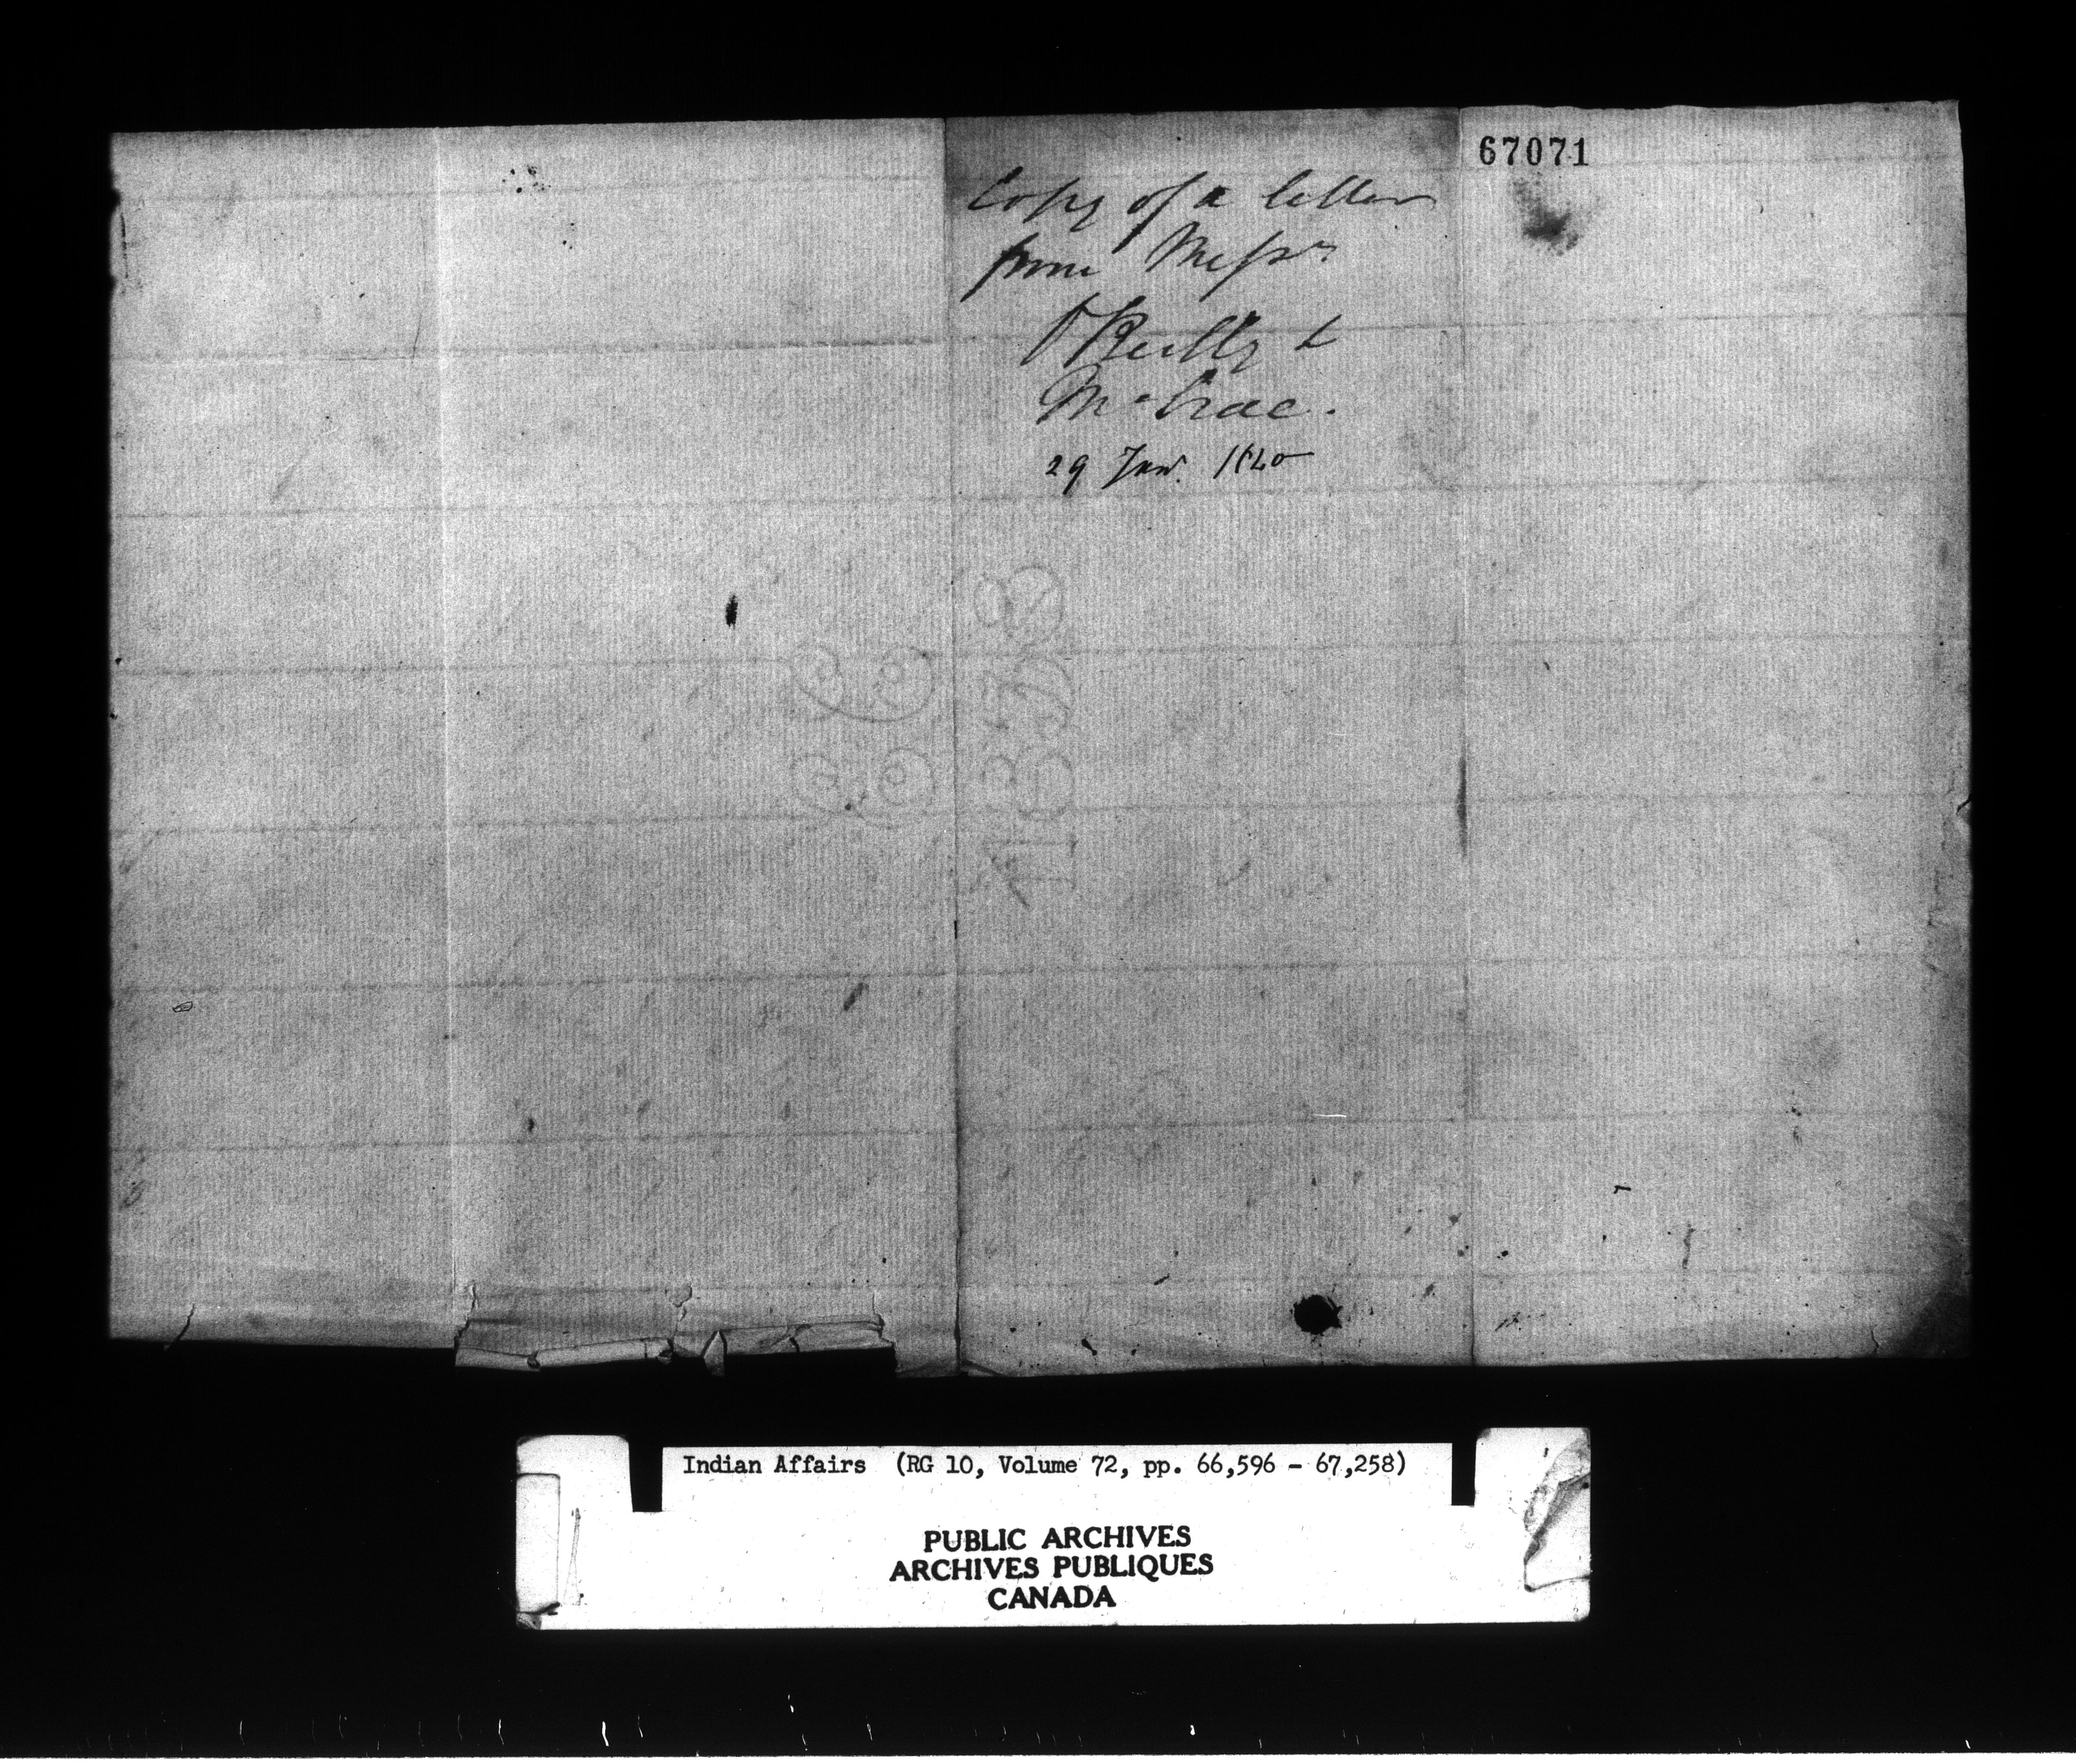 67071
Copy of a letter
from Messrs
O'Reilly &
McCrae.
29 Jan. 1840
1838
Indian Affairs (RG 10, Volume 72, pp. 66,596 - 67,258)
PUBLIC ARCHIVES
ARCHIVES PUBLIQUES
CANADA